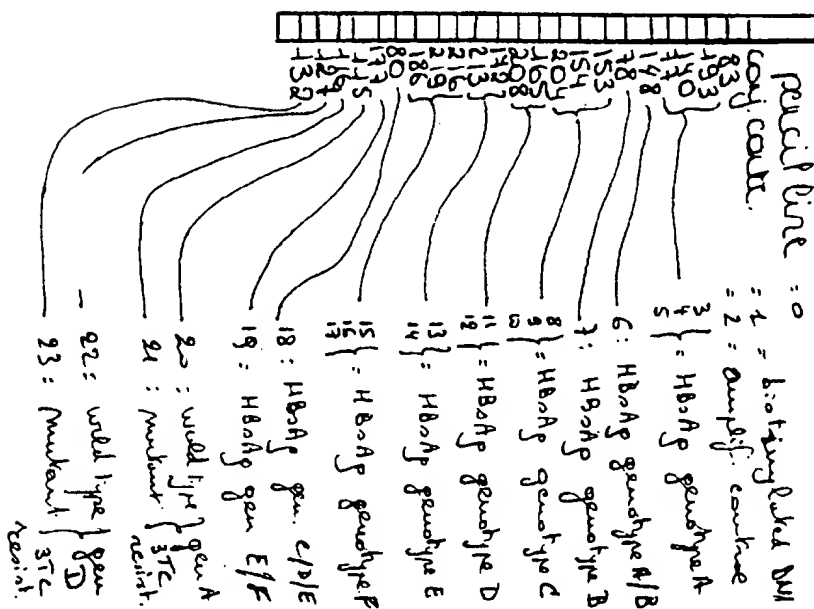 pencil line = 0
conj. contr. = 1 = biotinylated DNA
83 = 2 = amplif. control
193
140
3
4 } = HBsAg genotype A
5
148
6 : HBsAg genotype A/B
78
7 : HBsAg genotype B
153
154
204
8
9 } = HBsAg genotype C
10
165
208
11
12 } = HBsAg genotype D
213
13
14 } = HBsAg genotype E
216
219
186
15
16 } = HBsAg genotype F
17
80
18 : HBsAg gen. C/D/E
177
19 : HBsAg gen E/F
115
20 : wild type } gen A
21 : mutant } 3TC
resist.
127
132
22 : wild type } gen D
23 : mutant } 3TC
resist.